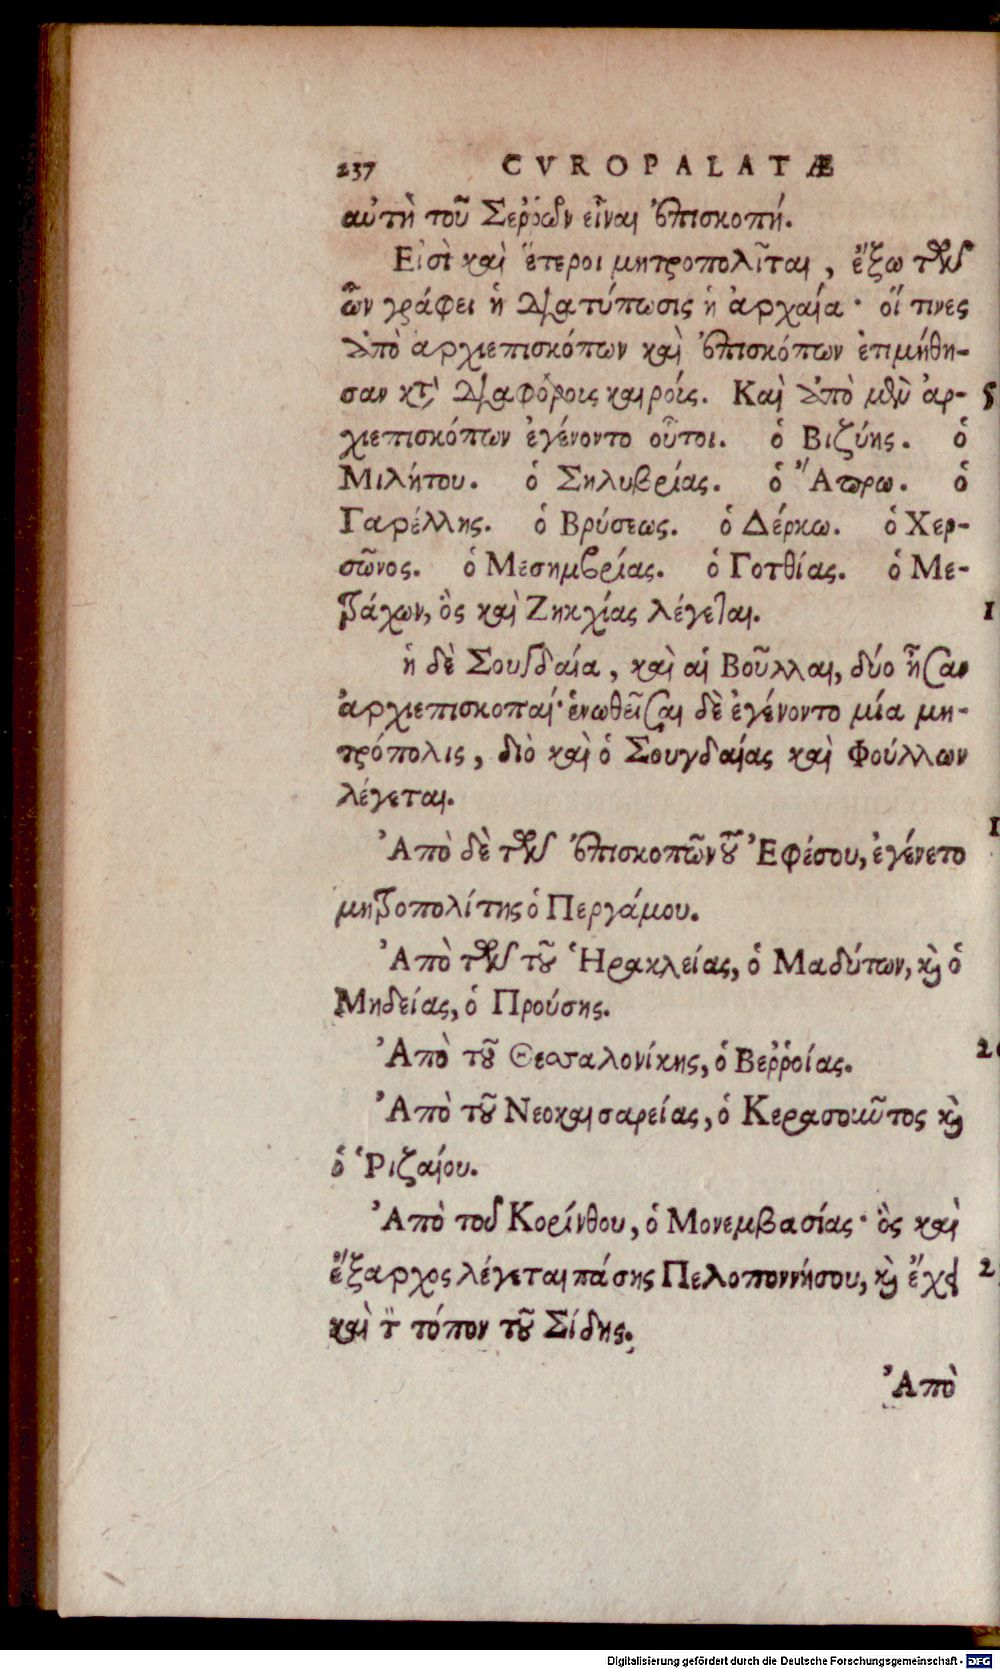 237 CVROPALATÆ
αὐτὴ τοῦ Σεῤῥῶν εἶναι ἐπισκοπή.
Εἰσὶ καὶ ἕτεροι μητροπολῖται, ἔξω τῶν
ὧν γράφει ἡ διατύπωσις ἡ ἀρχαία· οἵ τινες
ἀπὸ ἀρχιεπισκόπων καὶ ἐπισκόπων ἐτιμήθη-
σαν κτ̀ διαφόροις καιροῖς. Καὶ ἀπὸ μὲν ἀρ- 5
χιεπισκόπων ἐγένοντο οὗτοι. ὁ Βιζύης. ὁ
Μιλήτου. ὁ Σηλυβρίας. ὁ Ἄπρω. ὁ
Γαρέλλης. ὁ Βρύσεως. ὁ Δέρκω. ὁ Χερ-
σῶνος. ὁ Μεσημβρίας. ὁ Γοτθίας. ὁ Με-
τράχων, ὃς καὶ Ζηκχίας λέγεται. 1
ἡ δὲ Σουγδαία, καὶ αἱ Βοῦλλαι, δύο ἦσαν
ἀρχιεπισκοπαί· ἑνωθεῖσαι δὲ ἐγένοντο μία μη-
τρόπολις, διὸ καὶ ὁ Σουγδαίας καὶ Φούλλων
λέγεται.
1
Ἀπὸ δὲ τῶν ἐπισκοπῶν τοῦ Ἐφέσου, ἐγένετο
μητροπολίτης ὁ Περγάμου.
Ἀπὸ τῶν τοῦ Ἡρακλείας, ὁ Μαδύτων, καὶ ὁ
Μηδείας, ὁ Προύσης.
Ἀπὸ τοῦ Θεσσαλονίκης, ὁ Βεῤῥοίας. 20
Ἀπὸ τοῦ Νεοκαισαρείας, ὁ Κερασοῦντος καὶ
ὁ Ῥιζαίου.
Ἀπὸ τοῦ Κορίνθου, ὁ Μονεμβασίας· ὃς καὶ
ἔξαρχος λέγεται πάσης Πελοποννήσου, καὶ ἔχει 2
καὶ τὸν τόπον τοῦ Σίδης.
Ἀπὸ
Digitalisierung gefördert durch die Deutsche Forschungsgemeinschaft - DFG